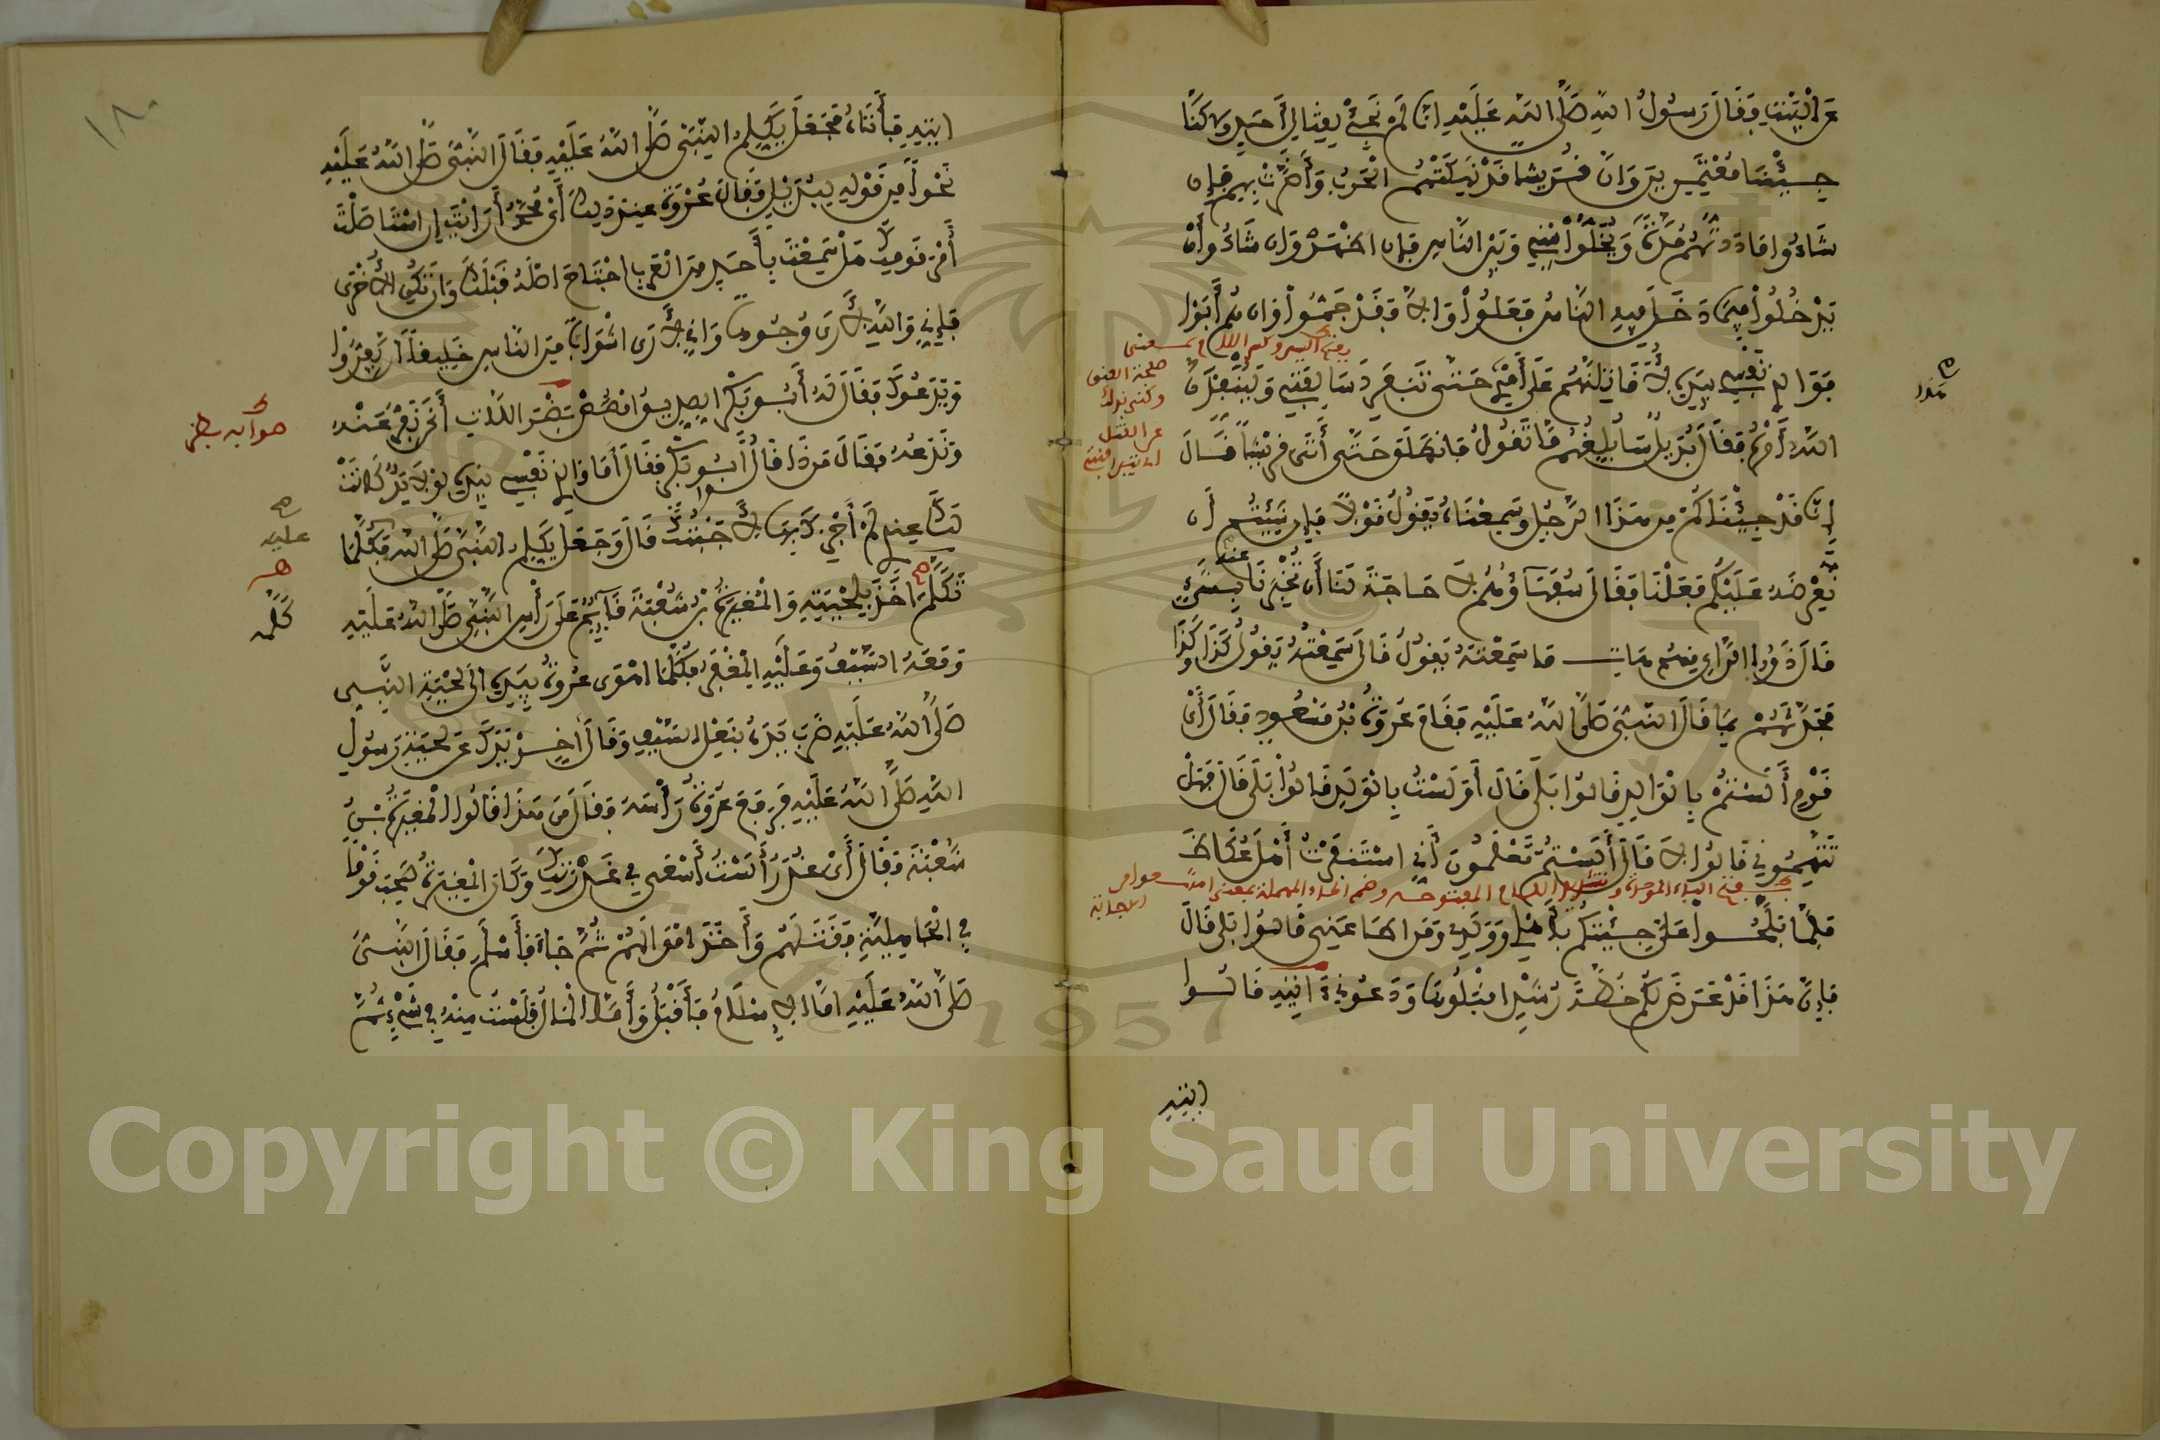 عن البيت فقال رسول الله صلى الله عليه إنا لم نجئ لقتال أحد ولكنا
جئنا معتمرين وإن قريشا قد نهكتهم الحرب وأضرت بهم فإن
شاءوا ماددتهم مدة ويخلوا بيني وبين الناس فإن أظهر وإن شاءوا أن
يدخلوا فيما دخل فيه الناس فعلوا وإلا فقد جموا وإن هم أبوا
فوالذي نفسي بيده لأقاتلنهم على أمري حتى تنفرد سالفتي ولينفذن
الله أمره فقال بديل سأبلغهم ما تقول فانطلق حتى أتى قريشا فقال
إنا قد جئناكم من هذا الرجل وسمعناه يقول قولا فإن شئتم أن
نعرضه عليكم فعلنا فقال سفهاؤهم لا حاجة لنا أن تخبرنا عنه بشيء
قال ذوو الرأي منهم هات ما سمعته يقول قال سمعته يقول كذا وكذا
فحدثهم بما قال النبي صلى الله عليه فقام عروة بن مسعود فقال أي
قوم ألستم بالوالد قالوا بلى قال أولست بالولد قالوا بلى قال فهل
تتهموني قالوا لا قال ألستم تعلمون أني استنفرت أهل عكاظ
فلما بلحوا علي جئتكم بأهلي وولدي ومن أطاعني قالوا بلى قال
فإن هذا قد عرض لكم خطة رشد اقبلوها ودعوني آتيه قالوا
ايتيه
ايتيه فأتاه فجعل يكلم النبي صلى الله عليه فقال النبي صلى الله عليه
نحوا من قوله لبديل فقال عروة عند ذلك أي محمد أرأيت إن استأصلت
أمر قومك هل سمعت بأحد من العرب اجتاح أصله قبلك وإن تكن الأخرى
فإني والله لأرى وجوها وإني لأرى أشوابا من الناس خليقا أن يفروا
ويدعوك فقال له أبو بكر الصديق امصص بظر اللات أنحن نفر عنه
وندعه فقال من ذا قالوا أبو بكر فقال أما والذي نفسي بيده لولا يد كانت
لك عندي لم أجزك بها لأجبتك قال وجعل يكلم النبي صلى الله فكلما
تكلم أخذ بلحيته والمغيرة بن شعبة قائم على رأس النبي صلى الله عليه
ومعه السيف وعليه المغفر فكلما أهوى عروة بيده إلى لحية النبي
صلى الله عليه ضرب يده بنعل السيف وقال أخر يدك عن لحية رسول
الله صلى الله عليه فرفع عروة رأسه فقال من هذا قالوا المغيرة بن
شعبة فقال أي غدر ألست أسعى في غدرتك وكان المغيرة صحب قوما
في الجاهلية فقتلهم وأخذ أموالهم ثم جاء فأسلم فقال النبي
صلى الله عليه أما الإسلام فأقبل وأما المال فلست منه في شيء ثم
عليه
كلمه
١٨٠
Copyright © King Saud University
1957